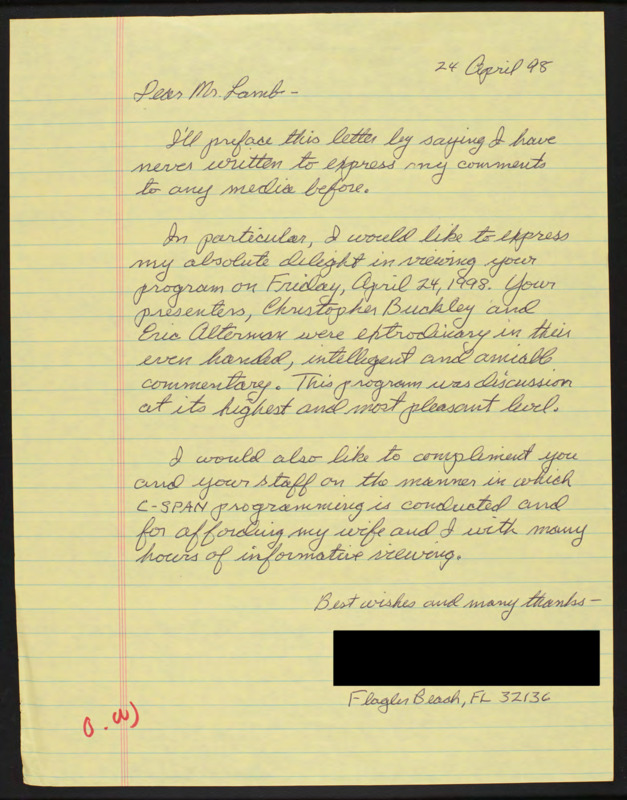 24 April 98
Dear Mr. Lamb -
I'll preface this letter by saying I have
never written to express my comments
to any media before.
In particular, I would like to express
my absolute delight in viewing your
program on Friday, April 24, 1998. Your
presenters, Christopher Buckley and
Eric Alterman were extrodinary in their
even handed, intellegent and amiable
commentary. This program was discussion
at its highest and most pleasant level.
I would also like to compliment you
and your staff on the manner in which
C-SPAN programming is conducted and
for affording my wife and I with many
hours of informative viewing.
Best wishes and many thanks -
Flagler Beach, FL 32136